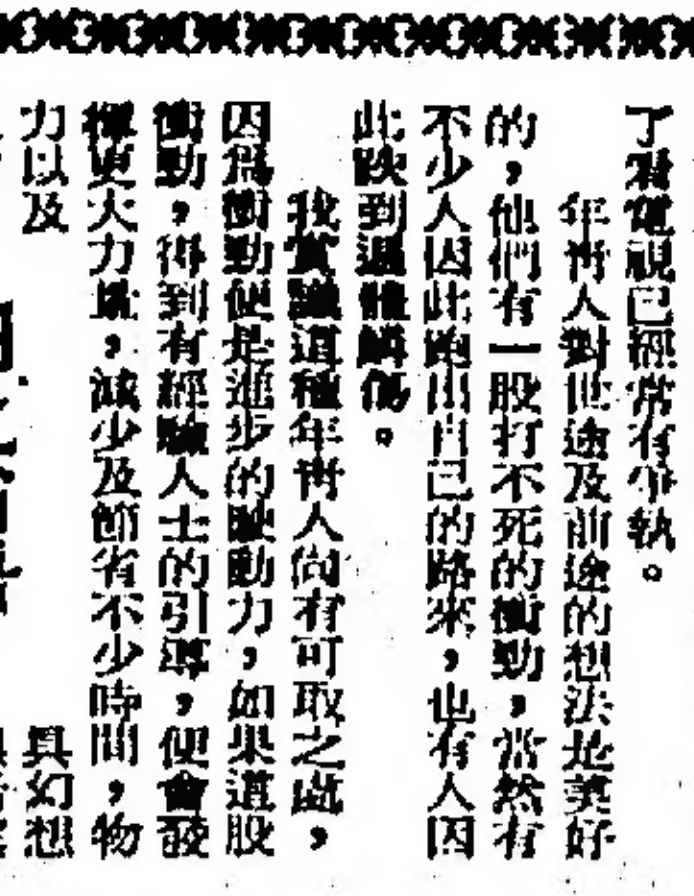 了看電視已經常有爭執。
年青人對世途及前途的想法是美好
的，他們有一股打不死的衝勁，當然有
不少人因此跑出自己的路來，也有人因
此跌到遍體鱗傷。
我賞識這種年青人尚有可取之處，
因爲衝勁便是進步的驅動力，如果這股
衝勁，得到有經驗人士的引導，便會發
揮更大力量，減少及節省不少時間，物
力以及
具幻想